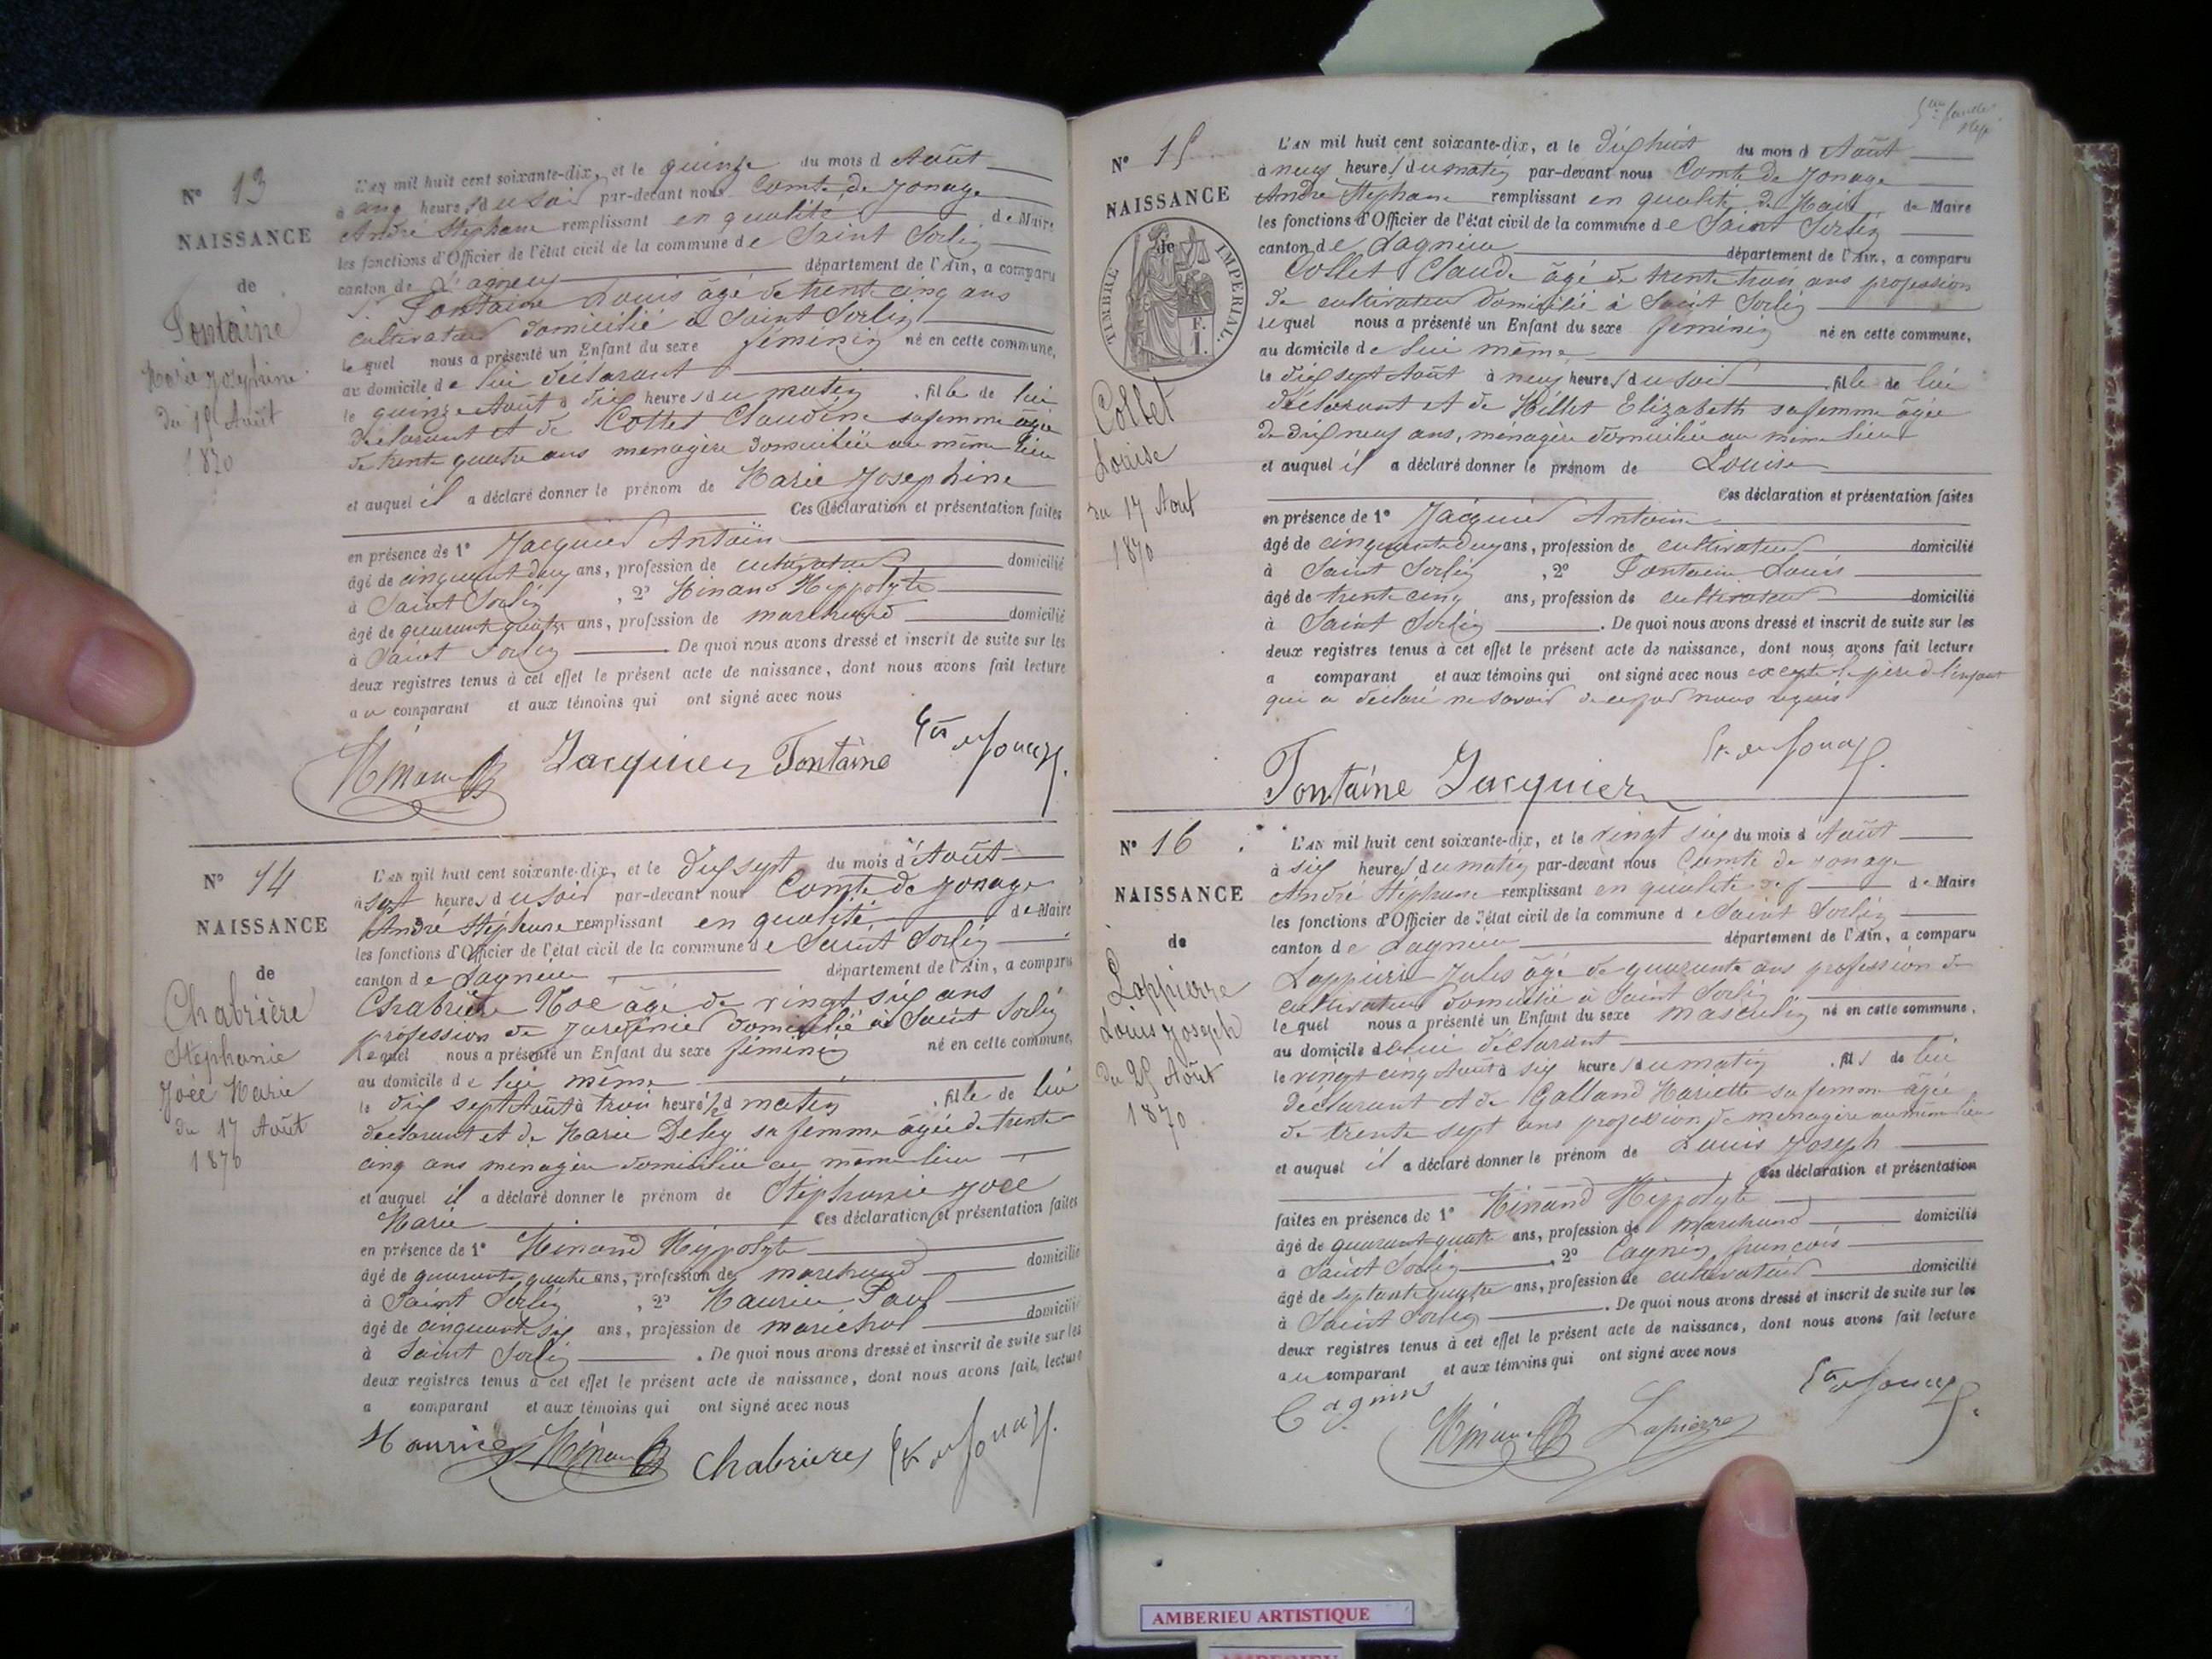 N° 13
NAISSANCE
de
Fontaine
Marie Joséphine
du 15 Août
1870
L'AN mil huit cent soixante-dix, et le quinze du mois d Août
à cinq heures du soir par-devant nous Comte de Jonage
André Stéphane remplissant en qualité de Maire
les fonctions d'Officier de l'état civil de la commune de Saint Sorlin
canton de Lagnieu département de l'Ain, a comparu
Fontaine Louis âgé de trente cinq ans
cultivateur domicilié à Saint Sorlin
lequel nous a présenté un Enfant du sexe féminin né en cette commune,
au domicile de lui déclarant
le quinze Août à dix heures du matin . fille de lui
déclarant et de Collet Claudine sa femme âgée
de trente quatre ans menagère domiciliée au même lieu
et auquel il a déclaré donner le prénom de Marie Josephine
Ces déclaration et présentation faites
en présence de 1° Jacquier Antoin
âgé de cinquant deux ans, profession de cultivateur domicilié
à Saint Sorlin , 2° Minand Hippolyte
âgé de quarant quatre ans, profession de marchand domicilié
à Saint Sorlin . De quoi nous avons dressé et inscrit de suite sur les
deux registres tenus à cet effet le présent acte de naissance, dont nous avons fait lecture
au comparant et aux témoins qui ont signé avec nous
Minand Jacquier Fontaine Cte de Jonage
N° 14
NAISSANCE
de
Chabrière
Stephanie
Joée Marie
du 17 Août
1870
L'AN mil huit cent soixante-dix, et le dix sept du mois d'Août
à sept heures du soir par-devant nous Comte de Jonage
André Stéphane remplissant en qualité de Maire
les fonctions d'Officier de l'état civil de la commune de Saint Sorlin
canton de Lagnieu département de l'Ain, a comparu
Chabrière Noe âgé de vingt six ans
profession de jardinier domicilié à Saint Sorlin
lequel nous a présenté un Enfant du sexe féminin né en cette commune,
au domicile de lui même
le dix sept Août à trois heures ½ d matin . fille de lui
déclarant et de Marie Deley sa femme âgée de trente
cinq ans ménagère domiciliée au même lieu
et auquel il a déclaré donner le prénom de Stéphanie Joée
Marie Ces déclaration et présentation faites
en présence de 1° Minand Hippolyte
âgé de quarante quatre ans, profession de marchand domicilié
à Saint Sorlin , 2° Maurice Paul
âgé de cinquante six ans, profession de maréchal domicilié
à Saint Sorlin . De quoi nous avons dressé et inscrit de suite sur les
deux registres tenus à cet effet le présent acte de naissance, dont nous avons fait lecture
a comparant et aux témoins qui ont signé avec nous
Maurice Minand Chabrieres Cte de Jonage
N° 15
NAISSANCE
de
TIMBRE IMPERIAL
F.
1.
Collet
Louise
du 17 Aout
1870
L'AN mil huit cent soixante-dix, et le dix huit du mois d Août
à neuf heures du matin par-devant nous Comte de Jonage
André Stéphane remplissant en qualité de Maire de Maire
les fonctions d'Officier de l'état civil de la commune de Saint Sorlin
canton de Lagnieu département de l'Ain, a comparu
Collet Claude âgé de trente trois ans profession
de cultivateur domicilié à Saint Sorlin
lequel nous a présenté un Enfant du sexe féminin né en cette commune,
au domicile de lui même
le dix sept Août à neuf heures du soir . fille de lui
déclarant et de Millet Elizabeth sa femme âgée
de dix neuf ans, ménagère domiciliée au même lieu
et auquel il a déclaré donner le prénom de Louise
Ces déclaration et présentation faites
en présence de 1° Jacquier Antoine
âgé de cinquante deux ans, profession de cultivateur domicilié
à Saint Sorlin , 2° Fontaine Louis
âgé de trente cinq ans, profession de cultivateur domicilié
à Saint Sorlin . De quoi nous avons dressé et inscrit de suite sur les
deux registres tenus à cet effet le présent acte de naissance, dont nous avons fait lecture
a comparant et aux témoins qui ont signé avec nous excepté le père de l'enfant
qui a déclaré ne savoir de ce par nous requis
Fontaine Jacquier Cte de Jonage
N° 16
NAISSANCE
de
Lappierre
Louis Joseph
du 25 Août
1870
L'AN mil huit cent soixante-dix, et le vingt six du mois d Août
à six heures du matin par-devant nous Comte de Jonage
André Stéphane remplissant en qualité de Maire
les fonctions d'Officier de l'état civil de la commune de Saint Sorlin
canton de Lagnieu département de l'Ain, a comparu
Lappierre Jules âgé de quarante ans profession de
cultivateur domicilié à Saint Sorlin
lequel nous a présenté un Enfant du sexe masculin né en cette commune,
au domicile de lui déclarant
le vingt cinq Août à six heures du matin . fils de lui
déclarant et de Galland Mariette sa femme âgée
de trente sept ans profession de menagère au même lieu
et auquel il a déclaré donner le prénom de Louis Joseph
Ces déclaration et présentation
faites en présence de 1° Minand Hippolyte
âgé de quarant quatre ans, profession de marchand domicilié
à Saint Sorlin , 2° Cagnin françois
âgé de septante quatre ans, profession de cultivateur domicilié
à Saint Sorlin . De quoi nous avons dressé et inscrit de suite sur les
deux registres tenus à cet effet le présent acte de naissance, dont nous avons fait lecture
au comparant et aux témoins qui ont signé avec nous
Cagnin Minand Lapierre Cte de Jonage
AMBERIEU ARTISTIQUE
AMBERIEU